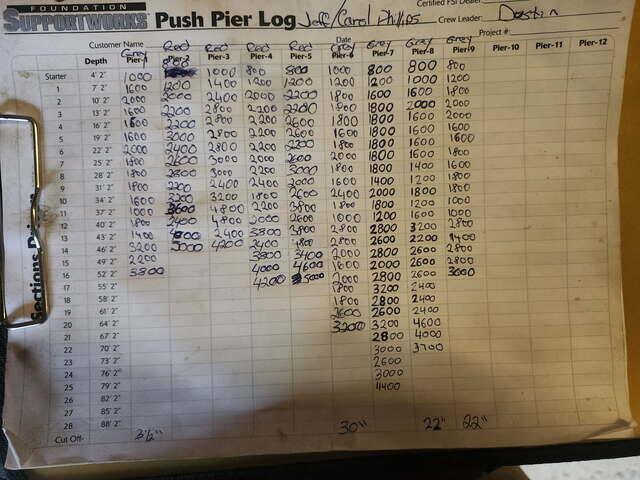 FOUNDATION SUPPORTWORKS Push Pier Log Jeff/Carol Phillips Certified FSI Dealer
Crew Leader: Dustin
Customer Name Date Project #:
Grey Red Red Red Red Grey Grey Grey Grey
Depth Pier-1 Pier-2 Pier-3 Pier-4 Pier-5 Pier-6 Pier-7 Pier-8 Pier-9 Pier-10 Pier-11 Pier-12
Starter 4' 2" 1000 1000 800 800 1000 800 800 800
1 7' 2" 1600 1200 1400 1200 1200 1200 1200 1000 1200
2 10' 2" 2000 2000 2400 2000 2200 1800 1600 1600 1800
3 13' 2" 1600 2200 2800 2200 2200 1800 1800 2000 2000
4 16' 2" 1800 2200 2800 2200 2600 1800 1800 1600 2000
5 19' 2" 1600 3000 2800 2200 2600 1600 1800 1600 1600
6 22' 2" 2000 2400 2800 2200 1800 1800 1600 1600
7 25' 2" 1800 2600 3000 2000 2600 2000 1800 1600 1800
8 28' 2" 1800 3000 2200 3000 1800 1800 1400 1600
9 31' 2" 1800 2200 2400 2400 2000 1600 1400 1200 1800
10 34' 2" 1600 3200 3200 1800 2600 2400 2000 1800 1800
11 37' 2" 1000 3600 4800 2200 3800 1800 1800 1200 1000
12 40' 2" 1800 2400 4800 2000 2600 1000 1200 1600 1000
13 43' 2" 1400 2400 3800 3800 2800 2800 3200 2800
14 46' 2" 3200 5000 4200 2400 4800 2800 2600 2200 1400
15 49' 2" 2200 3800 3400 2000 2800 2600 2800
16 52' 2" 3800 4000 4600 1600 2000 2600 2800
17 55' 2" 4200 5000 2000 2800 2600 3000
18 58' 2" 1800 3200 2400
19 61' 2" 1800 2800 2400
20 64' 2" 2600 2600 2400
21 67' 2" 3200 3200 4600
22 70' 2" 2800 4000
23 73' 2" 3000 3700
24 76' 2" 2600
25 79' 2" 3000
26 82' 2" 4400
27 85' 2"
28 88' 2"
Cut Off- 30" 22" 22"